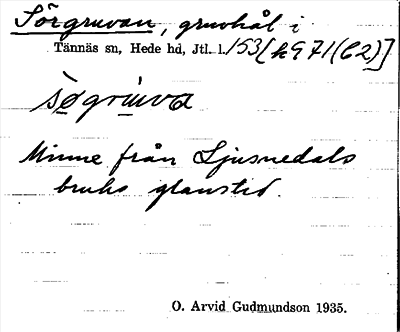 Sörgruvan, gruvhål i
Tännäs sn, Hede hd, Jtl. l. 153 [k 971 (C2)]
søgrúva
Minne från Ljusnedals
bruks glanstid.
O. Arvid Gudmundson 1935.